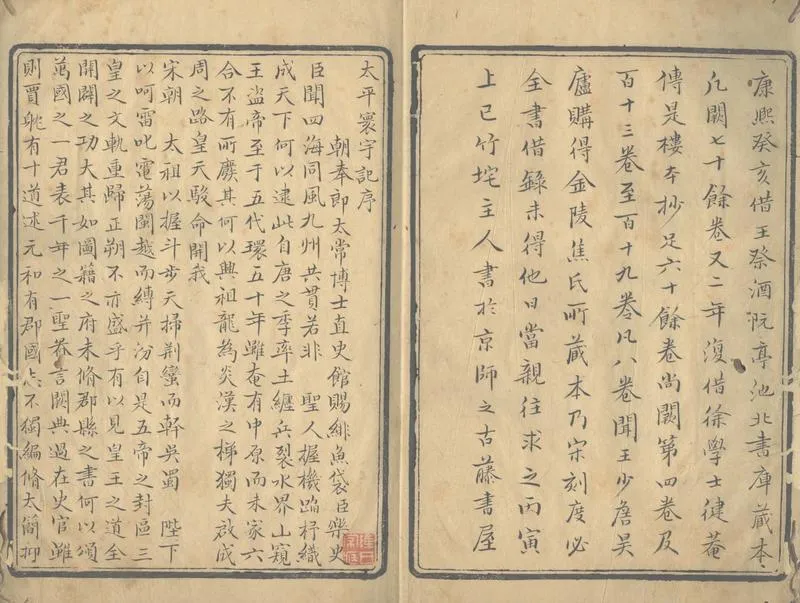 康熙癸亥借王祭酒阮亭池北書庫藏本
凡闕七十餘卷又二年復借徐學士健菴
傳是樓本抄足六十餘卷尚闕第四卷及
百十三卷至百十九卷凡八卷聞王少詹吴
廬購得金陵焦氏所藏本乃宋刻度必
全書借錄未得他日當親往求之丙寅
上巳竹垞主人書於京師之古藤書屋
太平寰宇記序
朝奉郎太常博士直史館賜緋魚袋臣樂史
臣聞四海同風九州共貫若非 聖人握機蹈杼織
成天下何以逮此自唐之季率土纏兵裂水界山窺
王盜帝至于五代環五十年雖奄有中原而未家六
合不有所廢其何以興祖龍為炎漢之梯獨夫啟成
周之路皇天駿命開我
宋朝 太祖以握斗步天掃荆蠻而幹吳蜀 陛下
以呵雷叱電蕩閩越而縛并汾自是五帝之封區三
皇之文軌重歸正朔不亦盛乎有以見皇王之道全
開闢之功大其如圖籍之府未脩郡縣之書何以頌
萬國之一君表千年之一聖眷言闕典過在史官雖
則賈耽有十道述元和有郡國志不獨編脩太簡抑